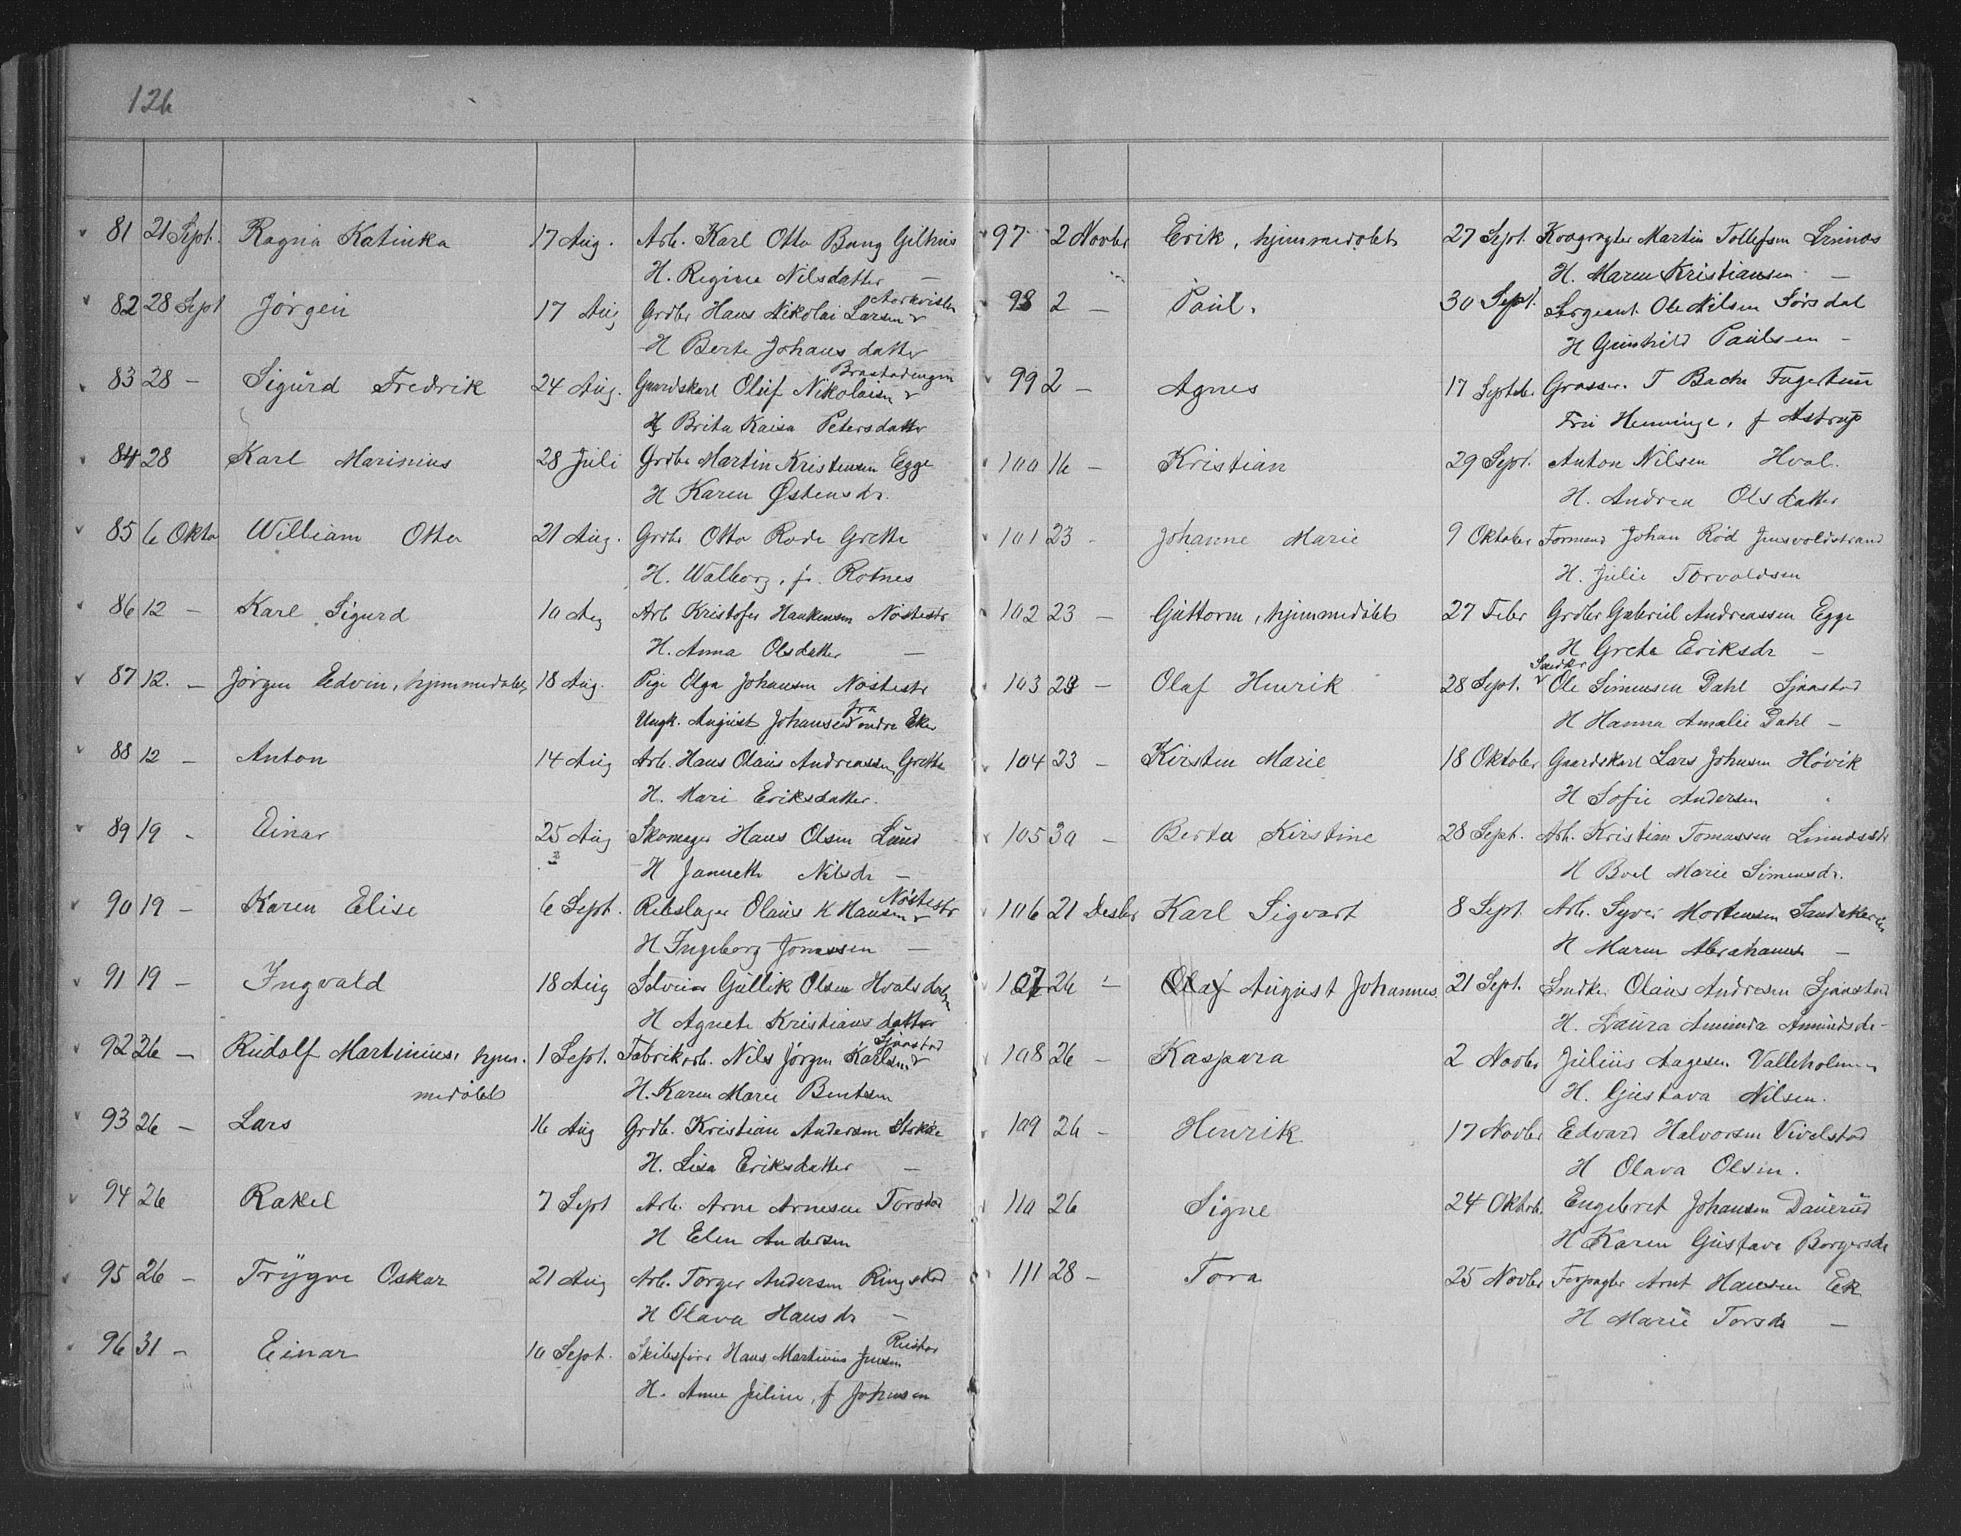 126
81 21 Sept. Ragna Katinka 17 Aug. Arb. Karl Otto Bang Gilhus
H. Regine Nilsdatter —
82 28 Sept Jørgen 17 Aug Grdbr Hans Nikolai Larsen
H Berte Johansdatter
83 28 — Sigurd Fredrik 24 Aug. Gaardskarl Oluf Nikolaisen
H Brita Kaisa Petersdatter
84 28 Karl Marinius 28 Juli Grdbr Martin Kristensen Egge
H Karen Østensdr.
85 6 Oktb William Otto 21 Aug. Grdbr Otto Rode Grette
H. Walborg, f. Rotnes
86 12 — Karl Sigurd 10 Aug Arb Kristofer Haakensen Nøstestr
H. Anna Olsdatter —
87 12. — Jørgen Edvin, hjemmedøbt, 18 Aug. Pige Olga Johansen Nøstestr
Ungk. August Johansen fra øndre Eker
88 12 — Anton 14 Aug Arb. Hans Olaus Andreassen, Grette
H. Mari Eriksdatter.
89 19 — Einar 25 Aug Skomager Hans Olsen Lund
H Janneth Nilsdr —
90 19 — Karen Elise 6 Sept. Rebslager Olaus K Hansen Nøstestr
H Ingeborg Jonassen —
91 19 — Ingvald 18 Aug Selveier Gullik Olsen Hvalsdalen
H Agnete Kristiansdatter
92 26 — Rudolf Martinius, hjem- 1 Sept. Fabrikarb. Nils Jørgen Karlsen Sjaastad
medøbt H. Karen Marie Bentsen
93 26 — Lars 16 Aug Grdb. Kristian Andersen Stokke
H. Lisa Eriksdatter —
94 26 Rakel 7 Sept Arb. Arne Arnesen Torstad
H Elen Andersen
95 26 — Trygve Oskar 21 Aug Arb. Torger Andersen Ringstad
H Olava Hansdr —
96 31 — Einar 10 Sept. Skibsfører Hans Martinius Jensen Rustad
H. Anne Juline, f Johnsen
97 2 Novbr Erik, hjemmedøbt 27 Sept. Martin Tollefsen Linnes
H. Maren Kristiansen —
98 2 — Paul. 30 Sept. Sergeant Ole Nilsen Sørsdal
H Gunhild Paulsen —
99 2 — Agnes 17 Septbr Grosser. T Bache Fagertun
Fru Henninge, f Astrup
100 16 — Kristian 29 Sept. Anton Nilsen Hval.
H. Andrea Olsdatter
101 23 — Johanne Marie 9 Oktober Formand Johan Rød Jensvoldstrand
H. Julie Torvaldsen
102 23 — Guttorm, hjemmedøbt 27 Febr Grdbr Gabriel Andreassen Egge
H Grete Eriksdr —
103 23 — Olaf Henrik 28 Sept. Snedker Ole Simensen Dahl Sjaastad
H Hanna Amalie Dahl —
104 23 — Kirsten Marie 18 Oktober Gaardskarl Lars Johnsen Høvik
H Sofie Andersen
105 30 — Berta Kirstine 28 Sept. Arb. Kristian Tomassen Linnesstr
H Boel Marie Simensdr.
106 21 Desbr Karl Sigvart 8 Sept. Arb. Syver Mortensen Sandakereie
H Maren Abrahams —
107 26 — Olaf August Johannes 21 Sept. Snedke. Olaus Andresen Sjaastad
H. Laura Aminda Amundsdr —
108 26 — Kaspara 2 Novbr Julius Aagesen Valleholmen
H. Gustava Nilsen.
109 26 — Henrik 17 Novbr Edvard Halvorsen Vivelstad
H Olava Olsen.
110 26 Signe 24 Oktob. Engebret Johansen Dauerud
H Karen Gustava Borgersdr
111 28 — Tora 25 Novbr Forpagter Arnt Hansen Ek
H Marie Torsdr —